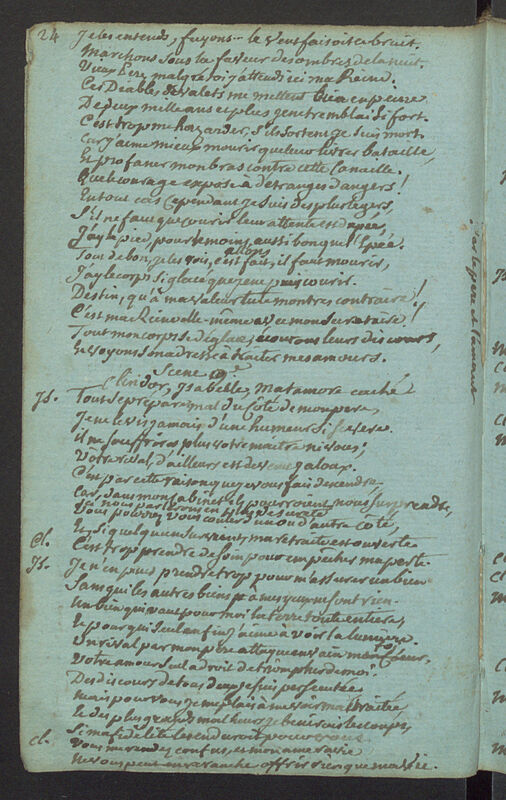 24 Je les entends, fuyons... le vent faisoit ce bruit.
Marchons sous la faveur des ombres de la nuit.
Vieux Pere, malgré toi j'attends ici ma Reine.
Ces Diables de valets me mettent bien en peine
De deux mille ans et plus je ne tremblai si fort.
C'est trop me hazarder, s'ils sortent je suis mort.
Car j'aime mieux mourir que leur livrer bataille,
Et profaner mon bras contre cette Canaille.
Que le courage expose à d'étranges dangers!
En tout cas cependant je suis des plus legers,
S'il ne faut que courir leur attente est dupée,
J'ay le pied, pour le moins, aussi bon que l'Epée.
Tout de bon, je les vois, c'est fait, il faut mourir,
J'ay le corps si glacé que je ne puis courir.
Destin, qu'à ma valeur tu te montres contraire!
C'est ma Reine elle-même avec mon Secretaire!
Tout mon corps se déglace, écoutons leurs discours,
Et voyons son adresse à traiter mes amours.
Scene
Clindor, Isabelle, Matamore caché
Is. Tout se prepare mal du côté de mon pere,
Je ne le vis jamais d'une humeur si severe.
Il ne souffrira plus votre maître ni vous;
Vôtre rival d'ailleurs est devenu jaloux.
C'est par cette raison que je vous fais descendre,
Car, dans mon Cabinet ils pourroient nous surprendre,
Ici nous parlerons en plus de sureté
Vous pourrez vous couler d'un ou d'autre côté,
Et, si quelqu'un survient, ma retraite est ouverte
Cl. C'est trop prendre de soin pour empêcher ma perte.
Is. Je n'en puis prendre trop pour m'assurer un bien
Sans qui les autres biens à mes yeux ne sont rien
Un bien qui vaut pour moi la terre toute entiere,
Et pour qui seul enfin j'aime à voir la lumiere.
Un rival par mon pere attaque en vain ma foi,
Votre amour seul a droit de triompher de moi.
Des discours de tous deux je suis persecutée
Mais pour vous je me plais à me voir maltraitée,
Et des plus grands malheurs je benirois les coups,
Si ma fidelité les enduroit pour vous
Cl. Vous me rendez confus, et mon ame ravie
Ne vous peut en revanche offrir rien que ma vie.